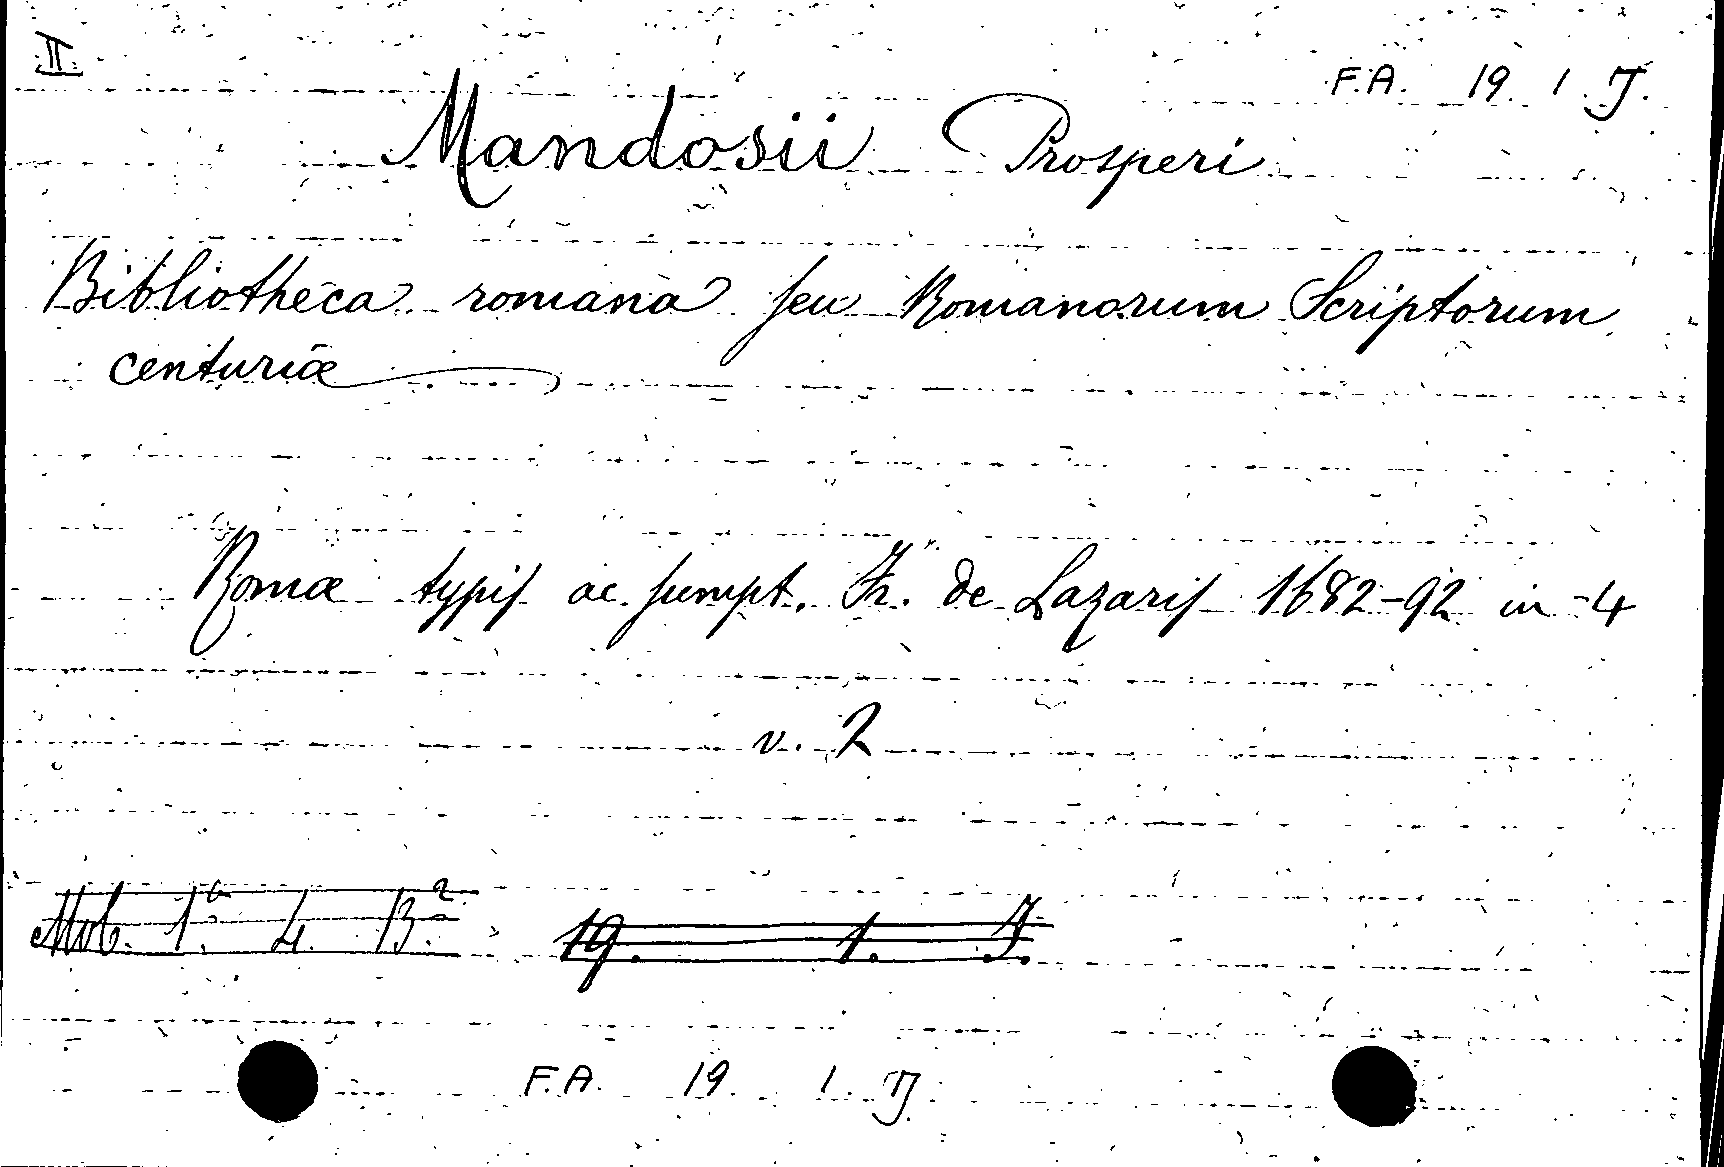 II.
F.A. 19. 1. J.
Mandosii Prosperi
Bibliotheca romana seu Romanorum Scriptorum
centuriæ
Romæ typis ac sumpt. Fr. de Lazaris 1682-92 in-4
v. 2
Mob. 1.a 4. B.a 19. 1. J.
F.A. 19. 1. J.